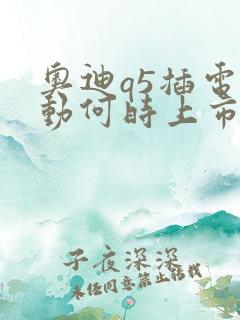 奥迪q5插电
動何時上市
子夜深深
未经同意禁止转载